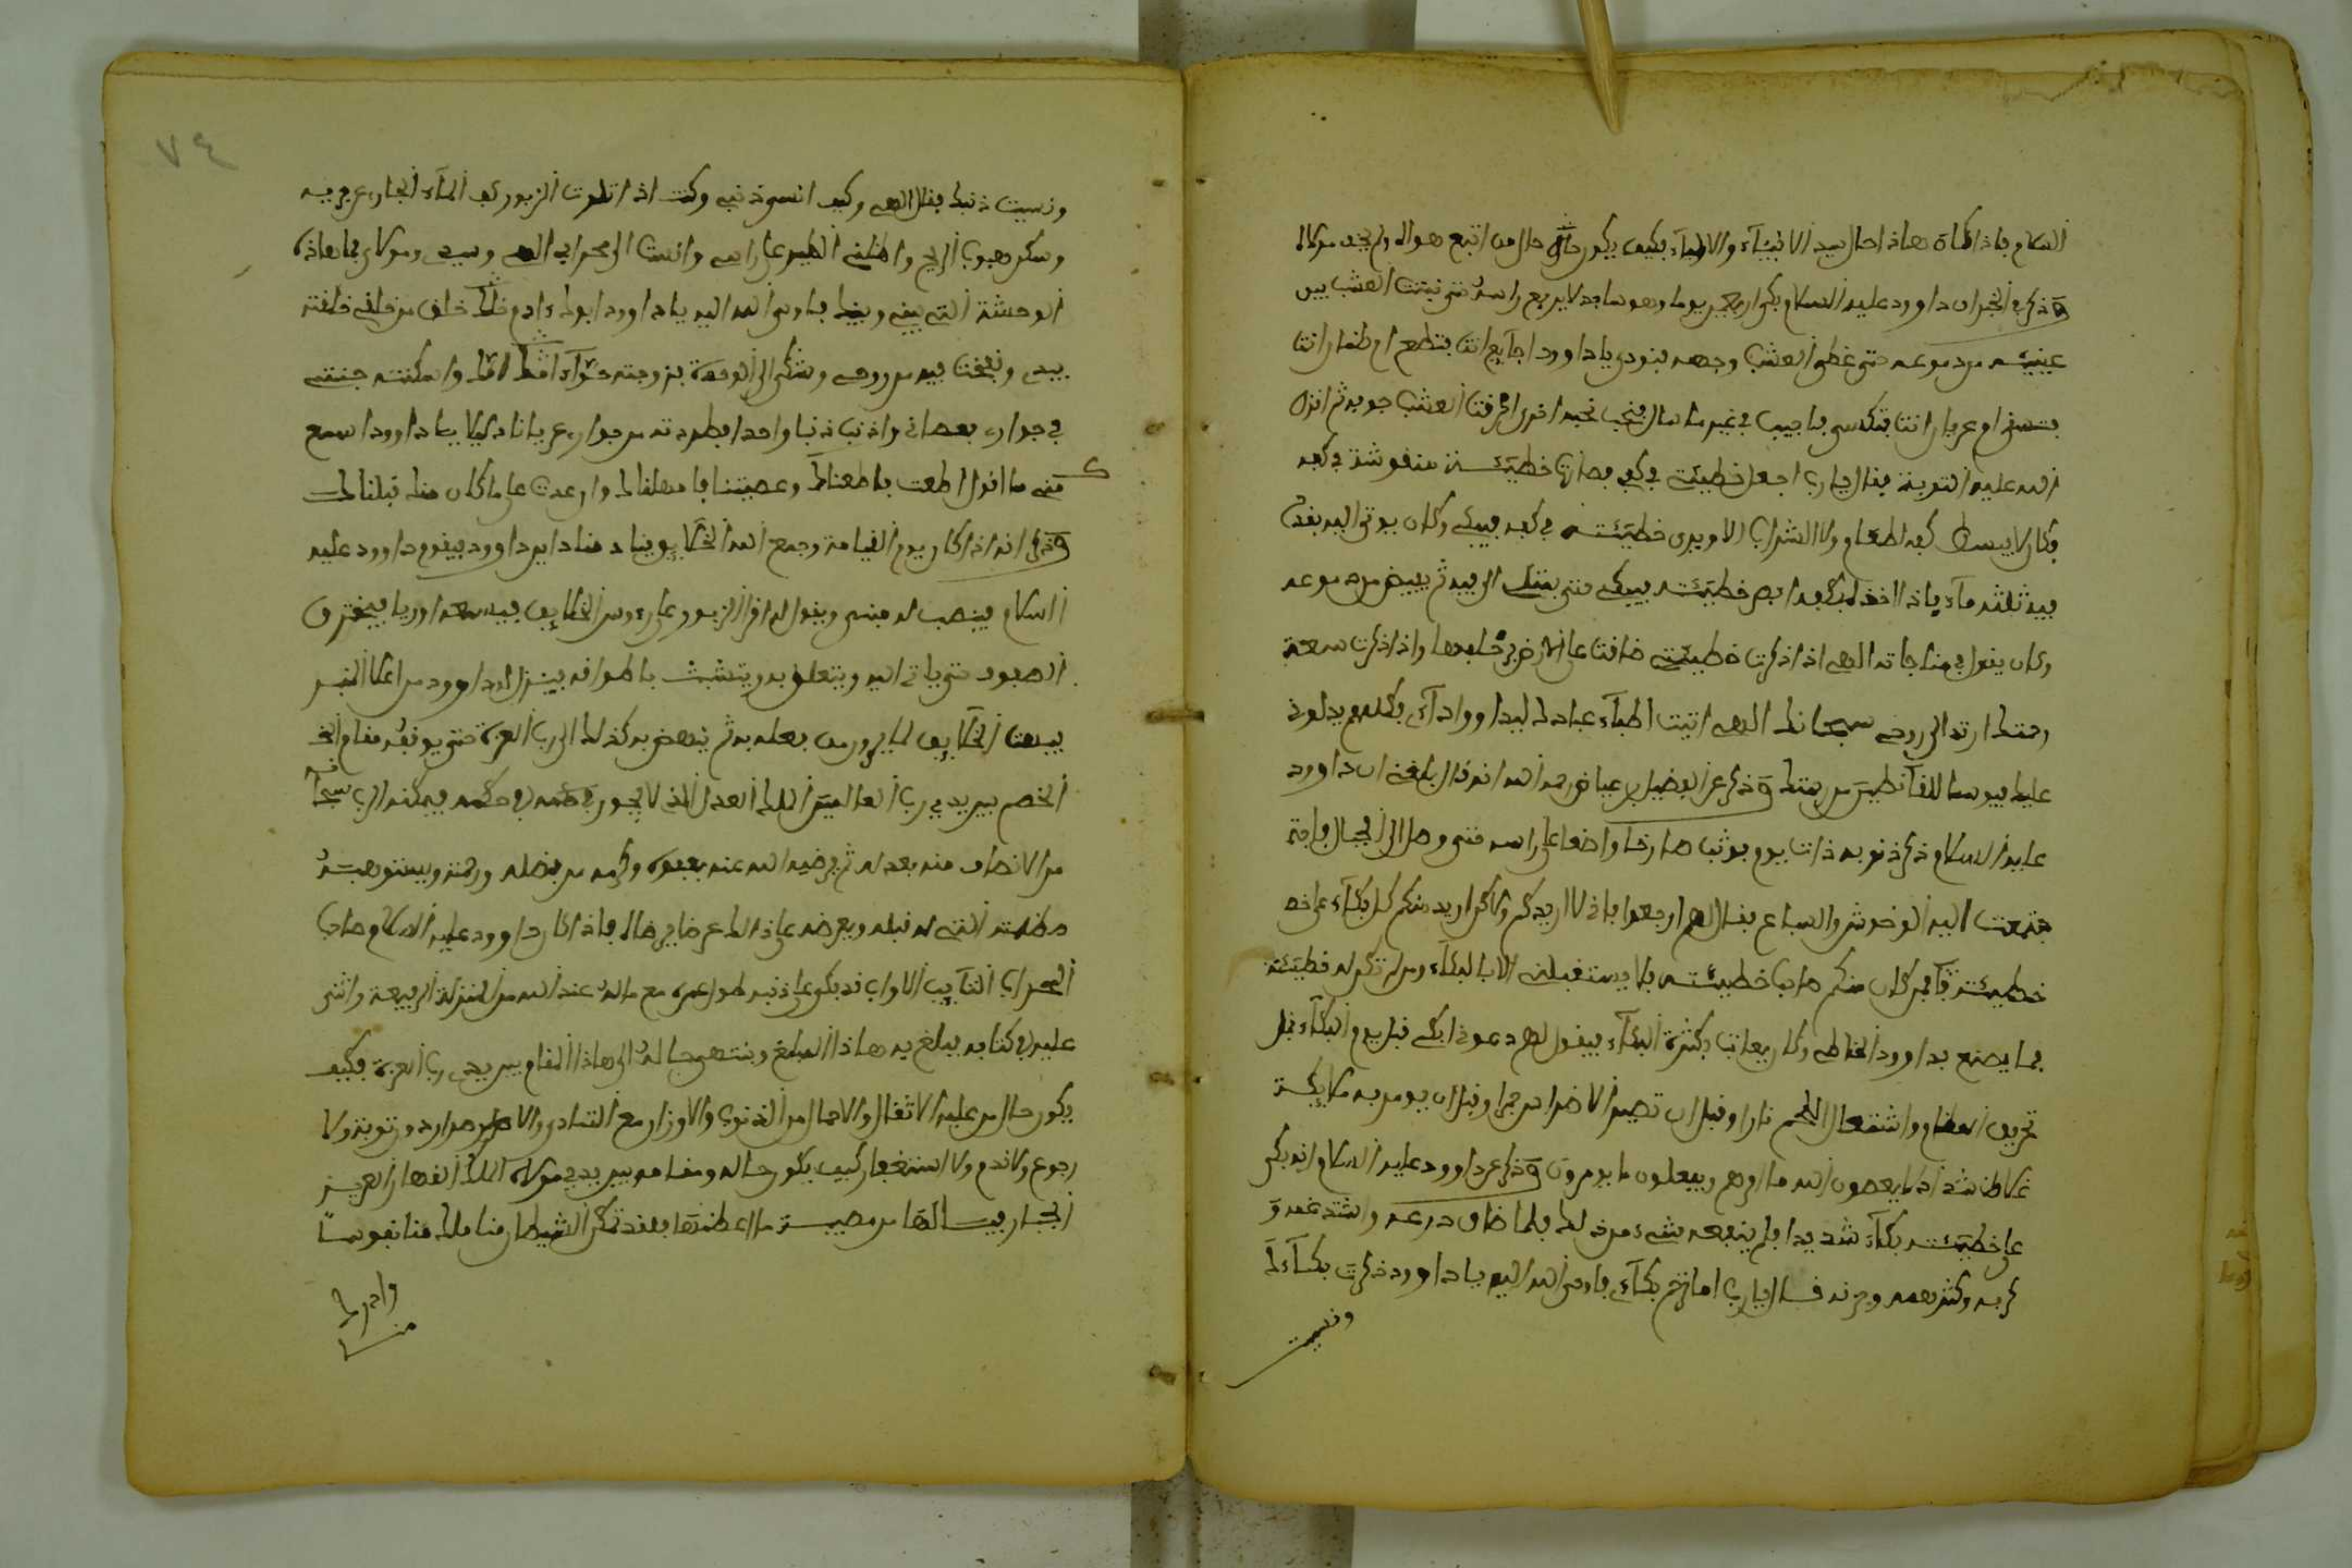 السلام فإذا كان هاذا حال سيد الانبياء والاولياء فكيف يكون حال من اتبع هواه ولم يخف مولاه
وذكر في الخبر ان داوود عليه السلام بكى اربعين يوما وهو ساجد لا يرفع راسه حتى نبتت العشب بين
عينيه من دموعه حتى غطى العشب وجهه فنودي يا داوود اجآيع انت فتطعم ام ظمآن انت
فتسقى ام عريان انت فتكسى فاجيب في غير ما سال فنحب نحبة اخرى احرقت العشب جوبه ثم انزل
الله عليه التوبة فقال يا رب اجعل خطيئتي في كفي فصارت خطيئته منقوشة في كفه
فكان لا يبسط كفه لطعام ولا لشراب الا ويرى خطيئته في كفه فيبكي وكان يوتى اليه بقدح
فيه ثلثه ماء فاذا اخذه بكفه ابصر خطيئته فيبكي حتى يمتلي القدح ثم يفيض من دموعه
وكان يقول في مناجاته الهي اذا ذكرت خطيئتي ضاقت علي الارض برحابها واذا ذكرت سعة
رحمتك ارتد الي روحي سبحانك الهي اتيت اطبآء عبادك ليداووا دآءي فكلهم يدلوني
عليك فبوسا للقانطين من رحمتك وذكر عن الفضيل بن عياض رحمه الله انه قال بلغني ان داوود
عليه السلام ذكر ذنوبه ذات يوم فوثب صارخا واضعا على راسه حتى وصل الى الجبال فاجتـ
ـتمعت اليه الوحوش والسباع فقال لهم ارجعوا فاني لا اريدكم ولاكن اريد منكم كل بكآء على
خطيئته فآمن كان منكم صاحب خطيئته فلا يستقبلني الا بالبكاء ومن لم تكن له خطيئة
فما يصنع بداوود الخاطي وكان يعاتب بكثرة البكآء فيقول لهم دعوني ابكي قبل يوم البكآء قبل
تحريق العظام واشتعال اللحم نارا وقبل ان يومر به ملايكة
غلاظ شداد لا يعصون الله ما امرهم ويفعلون ما يومرون وذكر عن داوود عليه السلام انه بكى
على خطيئته بكآء شديدا فلم ينفعه شيء من ذلك فلما ضاق ذرعه واشتد غمه و
كربه وكثر همه وحزنه فسال يا رب اما ترحم بكآءي فاوحى الله اليه يا داوود ذكرت بكآءك
ونسيت
٧٤
ونسيت ذنبك فقال الهي وكيف انسى ذنبي وكنت اذا تلوت الزبور كف المآء الجاري عن جريه
وسكن هبوب الريح واظلني الطير على راسي وانست الى محرابي الهي وسيدي ومولاي فما هاذه
الوحشة التي بيني وبينك فاوحى الله اليه يا داوود ابوك ءادم خلق خلقته
بيدي ونفخت فيه من روحي وشكى الي الوحدة فزوجته حوآء امتي واسكنته جنتي
في جواري فعصاني واذنب ذنبا واحدا فطردته من جواري عريانا ذليلا يا داوود اسمع
مني ما اقول اطعت فاطعناك وعصيتنا فامهلناك وان عدت على ما كان منك قبلناك
وذكر انه اذا كان يوم القيامة وجمع الله الخلايق ينادي مناد اين داوود فيقوم داوود عليه
السلام فينصب له منبر ويقول له اقرا الزبور على رءوس الخلايق فيسمعه اوريا فيخترق
الصفوف حتى ياتي اليه ويتعلق به ويتشبث باطواقه فينزل داوود من اعلا المنبر
فيبهت الخلايق لما يرون من فعله به ثم ينهض به كذلك الى رب العزة حتى يوقفه مقام
الخصم بين يدي رب العالمين الملك العدل الذي لا يجور في حكمه فيمكنه الرب سبحانه
من الانصاف منه بعدله ثم يرضيه الله عنه بعفوه وكرمه من فضله ورحمته ويستوهبه
مظلمته التي له قبله ويعوضه على ذالك عوضا فاذا كان داوود عليه السلام صاحب
المحراب التآيب الاواب قد بكى على ذنبه طول عمره مع ماله عند الله من المنزلة الرفيعة واثنى
عليه في كتابه يبلغ به هاذا المبلغ وينتهي حاله الى هاذا المقام بين يدي رب العزة فكيف
يكون حال من عليه الاثقال والاحمال من الذنوب والاوزار مع التمادي والاصرار من دون توبة ولا
رجوع ولا ندم ولا استغفار كيف يكون حاله ومقامه بين يدي مولاه الملك القهار العزيز
الجبار فيا لها من مصيبة ما اعظمها فلقد تمكن الشيطان منا ملك منا نفوسنا
وادرك
منا